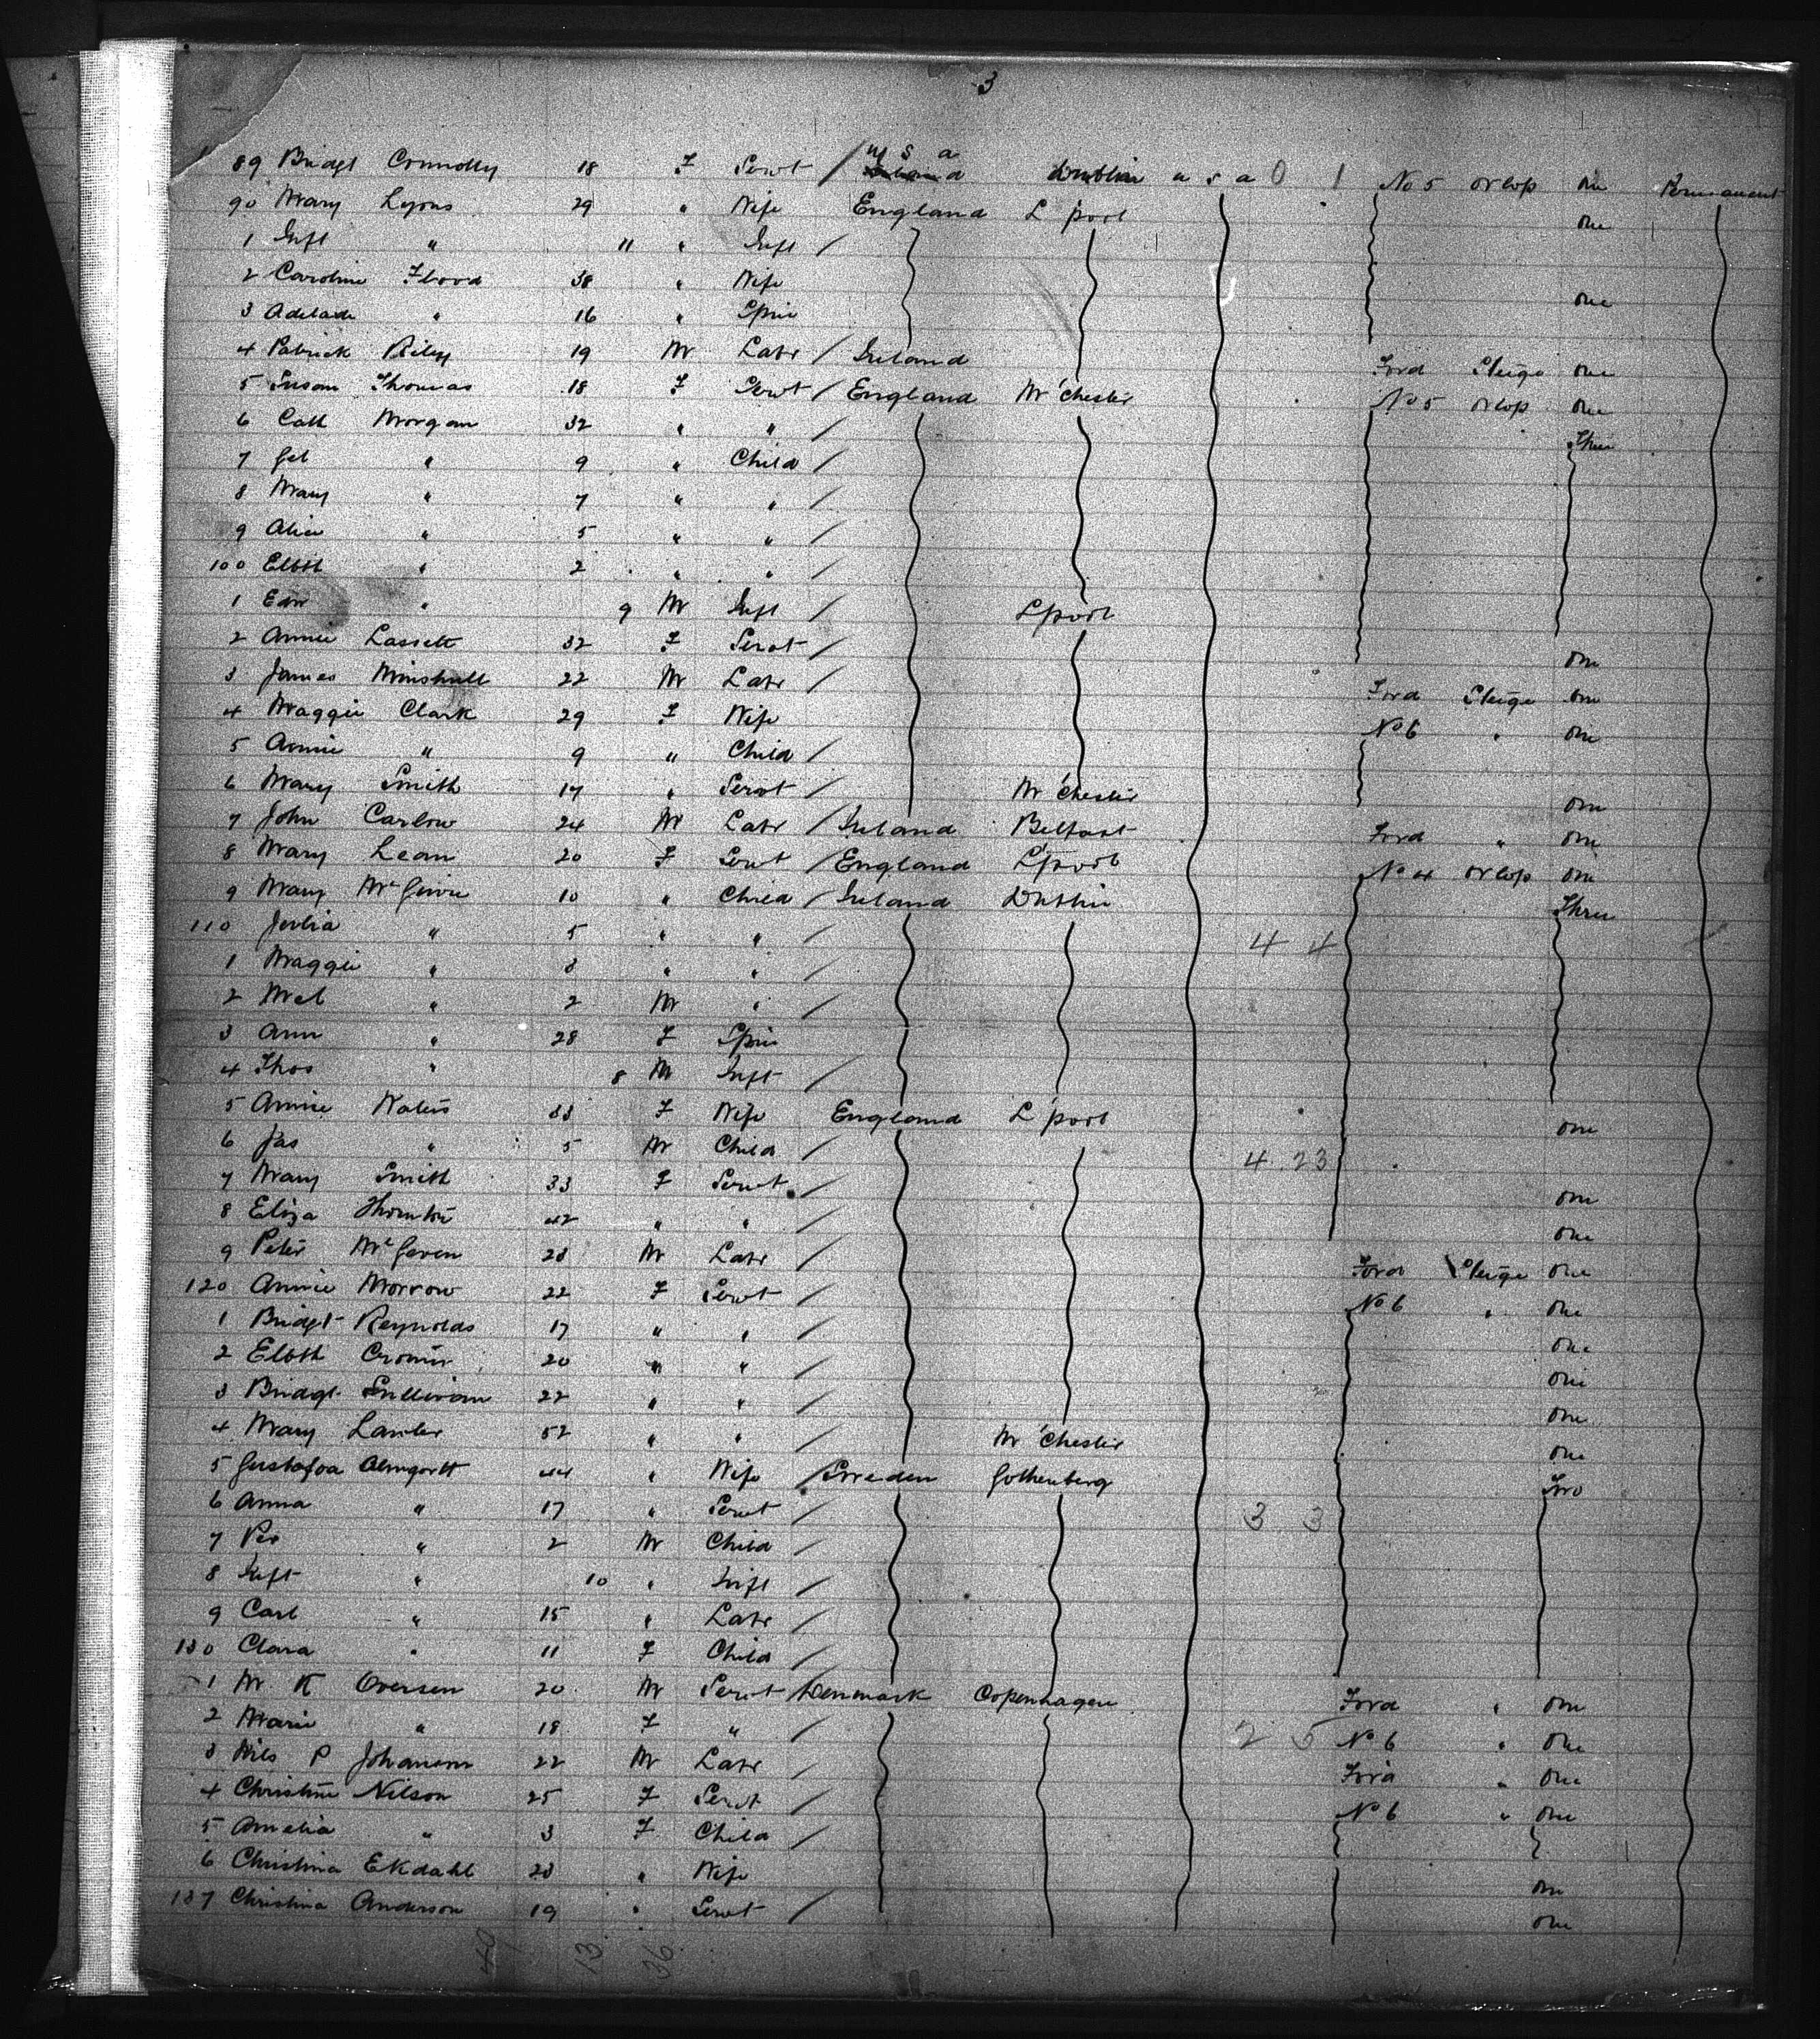 3
89 Bridgt Connolly 18 F Servt / U S A Dublin U S A 0 1 No 5 Orlop One Permanent
90 Mary Lyons 29 " Wife England L'pool One
1 Inft " 11 " Inft /
2 Caroline Flood 38 " Wife One
3 Adelade " 16 " Spin
4 Patrick Riley 19 M Labr / Ireland Ford Steige One
5 Susan Thomas 18 F Servt / England M'chester No 5 Orlop One
6 Cath Morgan 32 " " / Three
7 Get " 9 " Child /
8 Mary " 7 " " /
9 Alice " 5 " " /
100 Elbth " 2 " " /
1 Edw " 9 M Inft / L'pool
2 Annie Lassett 32 F Servt / One
3 James Minshull 22 M Labr / Ford Steige One
4 Maggie Clark 29 F Wife No 6 " One
5 Annie " 9 " Child /
6 Mary Smith 17 " Servt / M'chester One
7 John Carlow 24 M Labr / Ireland Belfast Ford " One
8 Mary Lean 20 F Servt / England L'pool No 4 Orlop One
9 Mary McGivin 10 " Child / Ireland Dublin Three
110 Julia " 5 " " / 4 4
1 Maggie " 3 " " /
2 Mel " 2 M " /
3 Ann " 28 F Spin
4 Thos " 8 M Inft /
5 Annie Waters 33 F Wife England L'pool One
6 Jas " 5 M Child / 4 23
7 Mary Smith 33 F Servt / One
8 Eliza Thornton 42 " " / One
9 Peter McGoven 28 M Labr / Ford Steige One
120 Annie Morrow 22 F Servt / No 6 " One
1 Bridgt Reynolds 17 " " / One
2 Elbth Cronin 20 " " / One
3 Bridgt Sullivan 22 " " / One
4 Mary Lawler 52 " " / M'chester One
5 Gustafva Almgortt 44 " Wife / Sweden Gothenberg Two
6 Anna " 17 " Servt / 3 3
7 Per " 2 M Child /
8 Inft " 10 " Inft /
9 Carl " 15 " Labr /
130 Clara " 11 F Child /
1 M K Oversen 20 M Servt / Denmark Copenhagen Ford " One
2 Marie " 18 F " / 2 5 No 6 " One
3 Nils P Johansen 22 M Labr / Ford " One
4 Christine Nilson 25 F Servt / No 6 " One
5 Amelia " 3 F Child /
6 Christina Ekdahl 23 " Wife One
137 Christina Anderson 19 " Servt / One
49 13 36